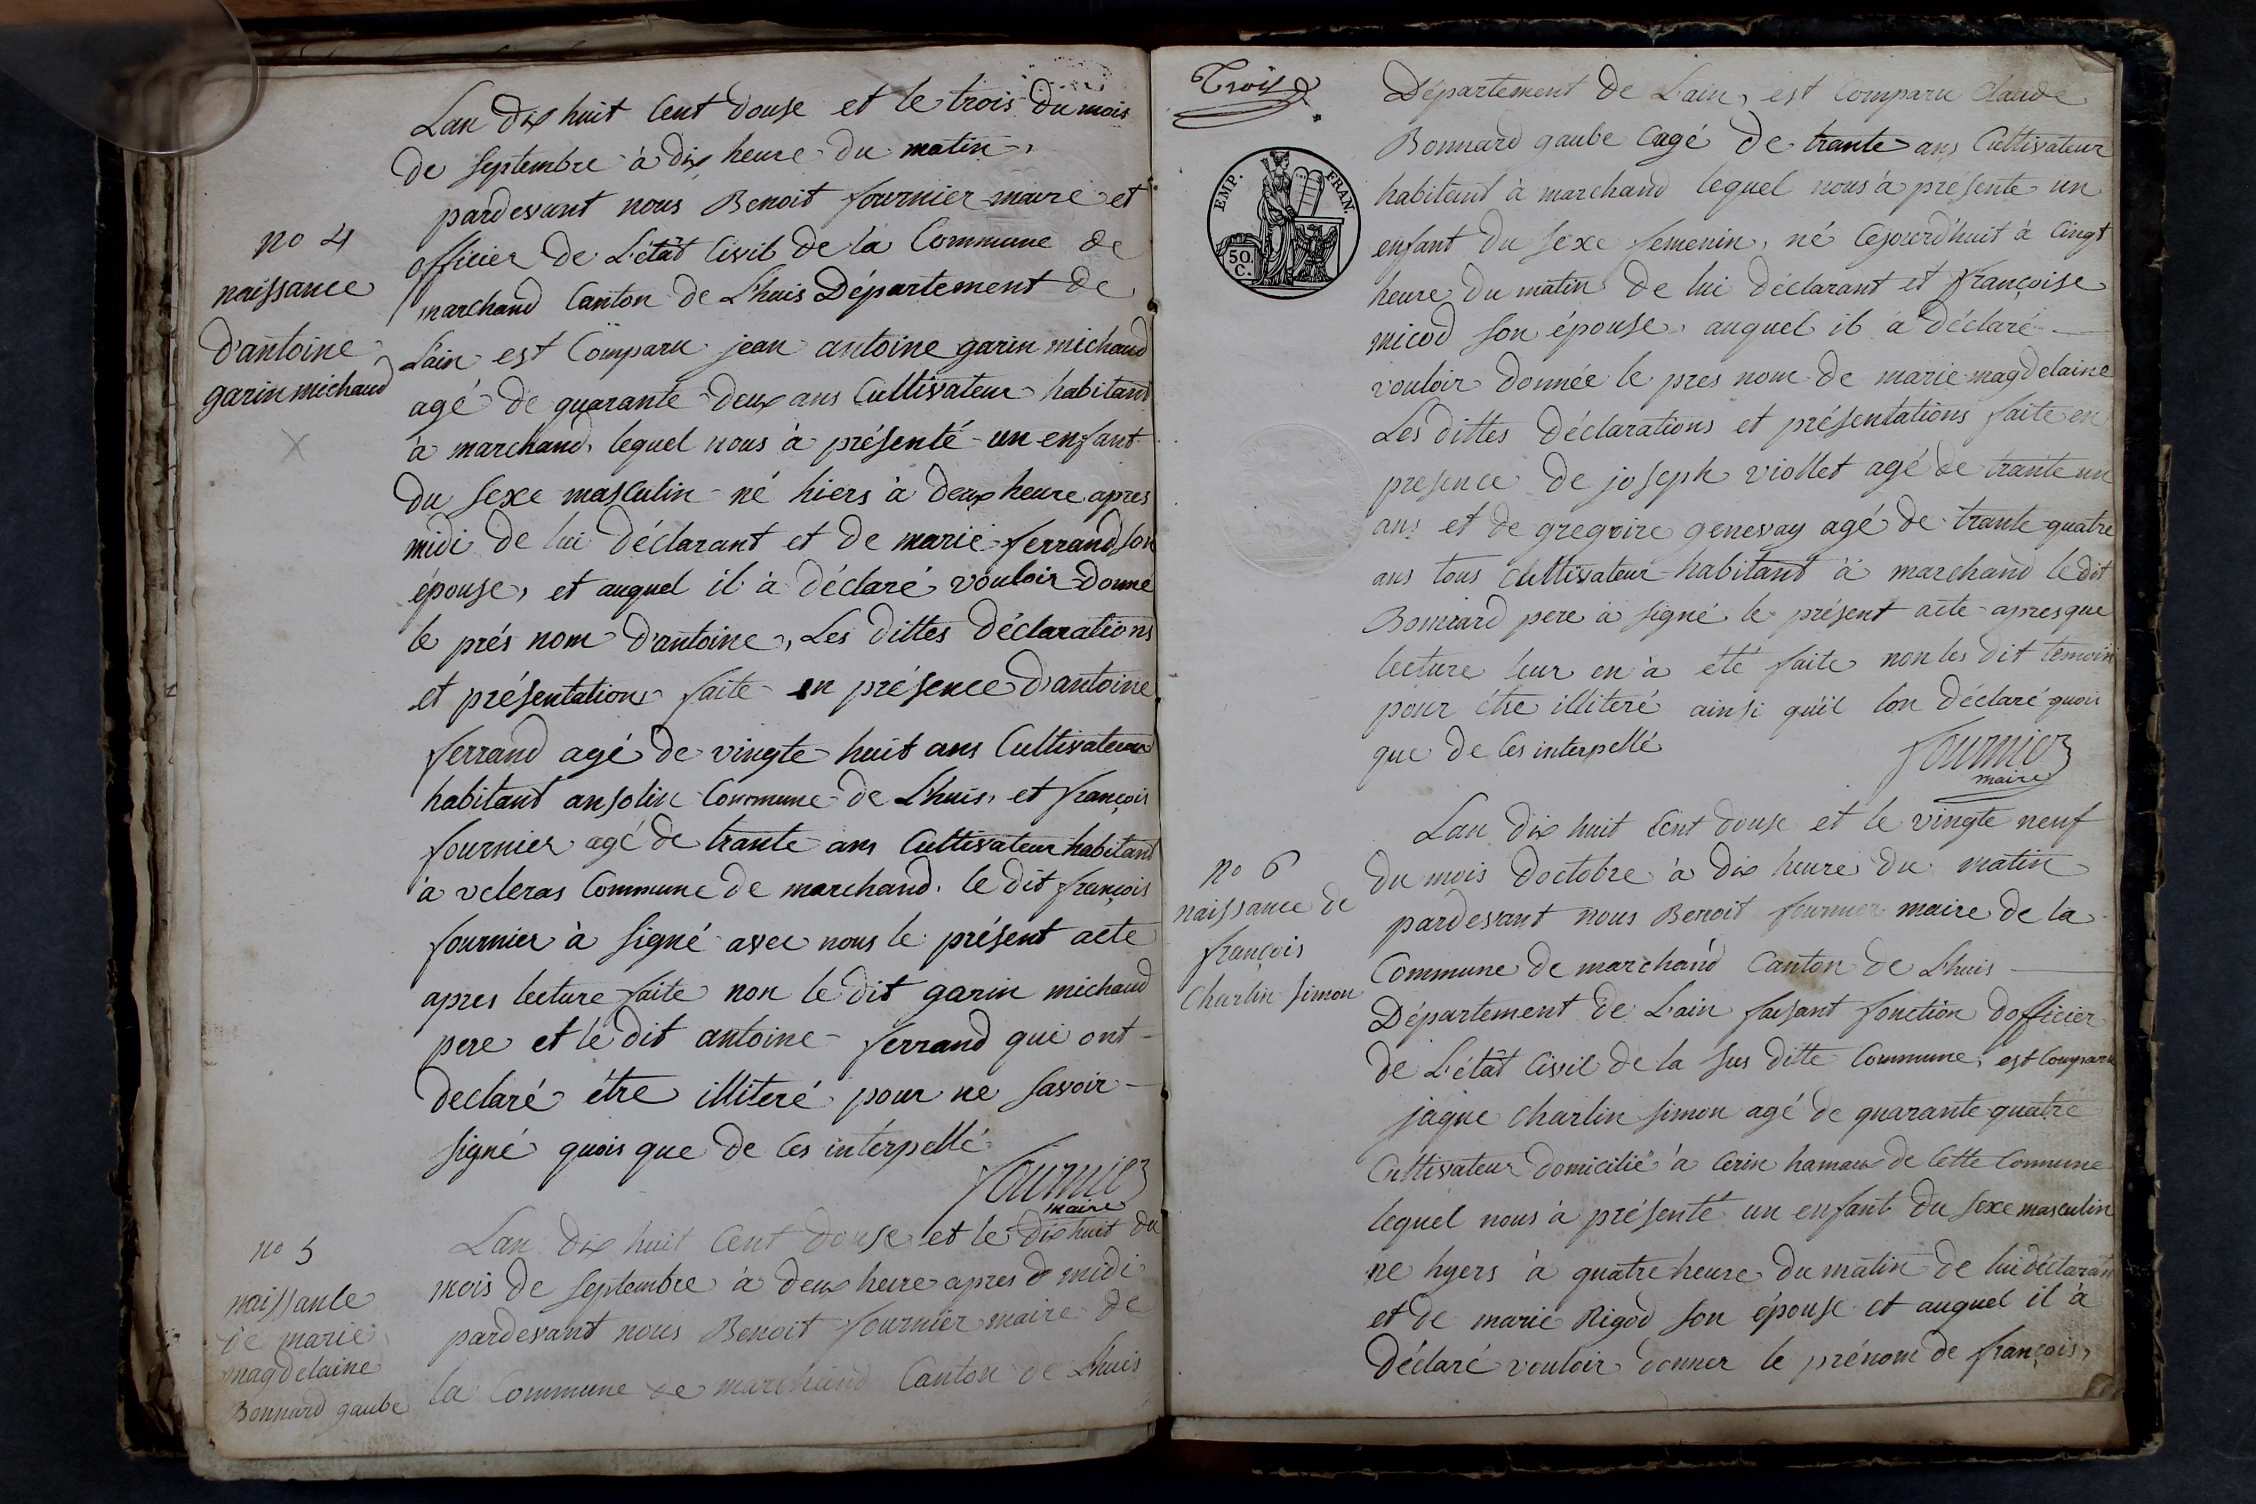 Lan dix huit Cent douse et le trois du mois
de septembre à dix heure du matin,
pardevant nous Benoit fournier maire et
no 4
officier de L'état Civil de la Commune de
naissance
marchand Canton de Lhuis Département de
d'antoine
garin michaud
Lain est Comparu jean antoine garin michaud
agé de quarante deux ans Cultivateur habitand
à marchand, lequel nous à présenté un enfant
du sexe masculin né hiers à deux heure apres
midi de lui déclarant et de marie ferrand son
épouse, et auquel il à déclaré vouloir donné
le prés nom d'antoine, Les dittes déclarations
et présentation faite en présence d'antoine
ferrand agé de vingte huit ans Cultivateur
habitant ansolin Commune de Lhuis, et françois
fournier agé de trante ans Cultivateur habitand
à veleras Commune de marchand, le dit françois
fournier à signé avec nous le présent acte
apres lecture faite non le dit garin michaud
pere et le dit antoine ferrand qui ont
declaré étre illiteré pour ne savoir
signé quois que de Ces intérpellé
fournier
maire
no 5
naissance
de marie
magdelaine
Bonnard gaube
Lan dix huit Cent douse et le dix huit du
mois de septembre à deux heure apres midi
pardevant nous Benoit fournier maire de
la Commune de marchand Canton de Lhuis
Trois
EMP. FRAN.
50. C.
Département de Lain, est Comparu Claude
Bonnard gaube agé de trante ans Cultivateur
habitant à marchand lequel nous à présente un
enfant du sexe femenin, né Cejourd'huit à Cingt
heure du matin de lui déclarant et françoise
micod son épouse, auquel il à déclaré
vouloir donnée le pres nom de marie magdelaine
Les dittes déclarations et présentations faite en
presence de joseph viollet agé de trante un
ans et de gregoire genevay agé de trante quatre
ans tous Cultivateur habitant à marchand le dit
Bonnard pere à signé le présent acte apres que
lecture leur en à été faite non les dit temoin
pour étre illiteré ainsi qu'il lon déclaré quois
que de Ces interpellé
fournier
maire
no 6
naissance de
françois
Charlin simon
Lan dix huit Cent douse et le vingte neuf
du mois doctobre à dix heure du matin
pardevant nous Benoit fournier maire de la
Commune de marchand Canton de Lhuis
Département de Lain faisant fonction dofficier
de L'état Civil de la sus ditte Commune, est Comparu
jaque Charlin simon agé de quarante quatre
Cultivateur domicilié à Cerin hamau de Cette Commune
lequel nous à présenté un enfant du sexe masculin
ne hyers à quatre heure du matin de lui déclarant
et de marie Rigod son épouse et auquel il à
Déclaré vouloir donner le prénom de françois,